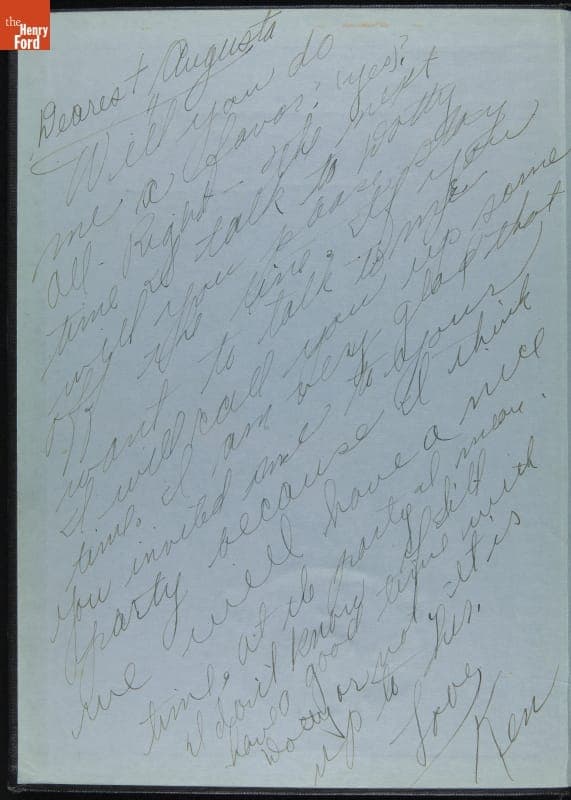 the
Henry
Ford
Dearest Augusta
Will you do
me a favor? (yes)?
All-Right- the next
time I talk to Dotty
will you please stay
off the line; If you
want to talk to me
I will call you up some
time. I am very glad that
you invited me to your
party because I think
we will have a nice
time, at the party I mean.
I don't know if I'll
have a good time with
Dotty or not. It is
up to her.
Love,
Ken